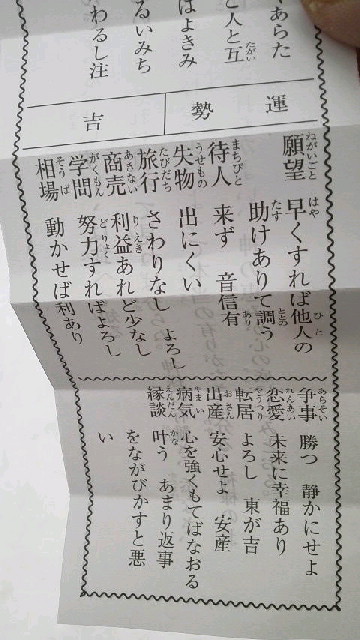 あらた
と人と互
はよきみ
るいみち
わるし注
運勢 吉
願望 早くすれば他人の
助けありて調う
待人 来ず 音信有
失物 出にくい
旅行 さわりなし よろし
商売 利益あれど少なし
学問 努力すればよろし
相場 動かせば利あり
争事 勝つ 静かにせよ
恋愛 未来に幸福あり
転居 よろし 東が吉
出産 安心せよ 安産
病気 心を強くもてばなおる
縁談 叶う あまり返事
をながびかすと悪
い